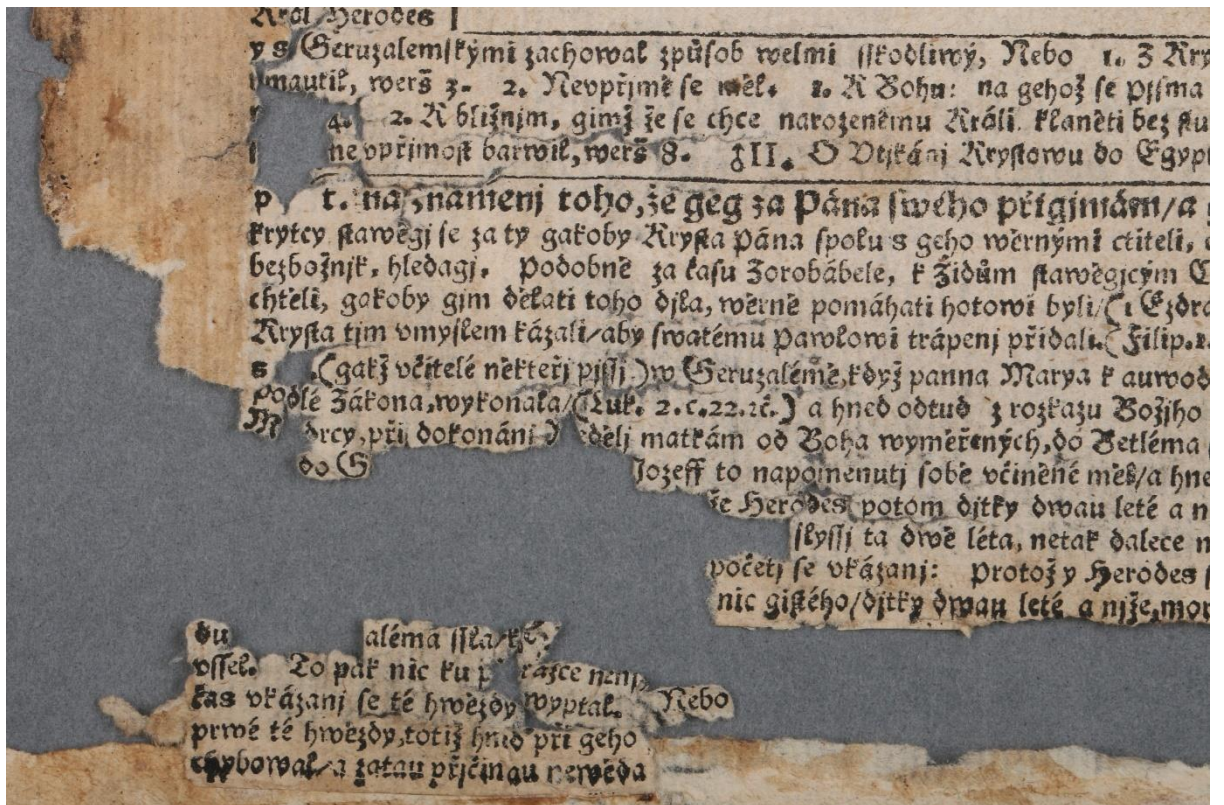 Král Herodes
y s Geruzalemskými zachowal způsob welmi sskodliwý, Nebo 1. Z
rmautil, werš 3. 2. Nevpřjmě se měl. 1. K Bohu: na gehož se Pjsma
4. 2. K bližnjm, gimž že se chce narozenému Králi klaněti bez
nevpřjmost barwil, werš 8. III. O Vtjkánj Krystowu do Egypt
t. na znamenj toho, že geg za Pána swého přigjmám/a
krytcy stawěgj se za ty gakoby Krysta Pána spolu s geho wěrnými ctiteli,
bezbožnjk, hledagj. Podobně za času Zorobábele, k Židům stawěgjcým
chtěli, gakoby gim dělati toho djla, wěrně pomáhati hotowi byli/(1 Ezdr
Krysta tjm vmyslem kázali/aby swatému Pawlowi trápenj přidali.(Filip.1.
s (gakž včitelé někteřj pjssj) w Geruzalémě, když panna Marya k auwod
podlé Zákona, wykonala/(Luk. 2.c.22.zč.) a hned odtud z rozkazu Božjho
M drcy, při dokonánj dělj
matkám od Boha wyměřených, do Betléma
do G Jozeff to napomenutj sobě včiněné měl/a hne
že Herodes potom djtky dwau leté a n
slyssj ta dwě léta, netak dalece
početj se vkázanj: Protož y Herodes
nic gistého/djtky dwau leté a njže,
du aléma ssla/
vssel. To pak nic ku rážce nenj,
čas vkázanj se té hwězdy wyptal. Nebo
prwé té hwězdy, totiž hned při geho
chybowal/a zatau přjčinau newěda